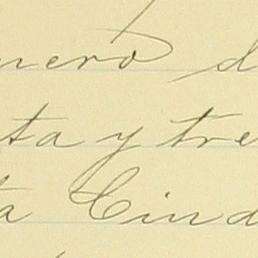 nero d
ta y tre
ta Ciud